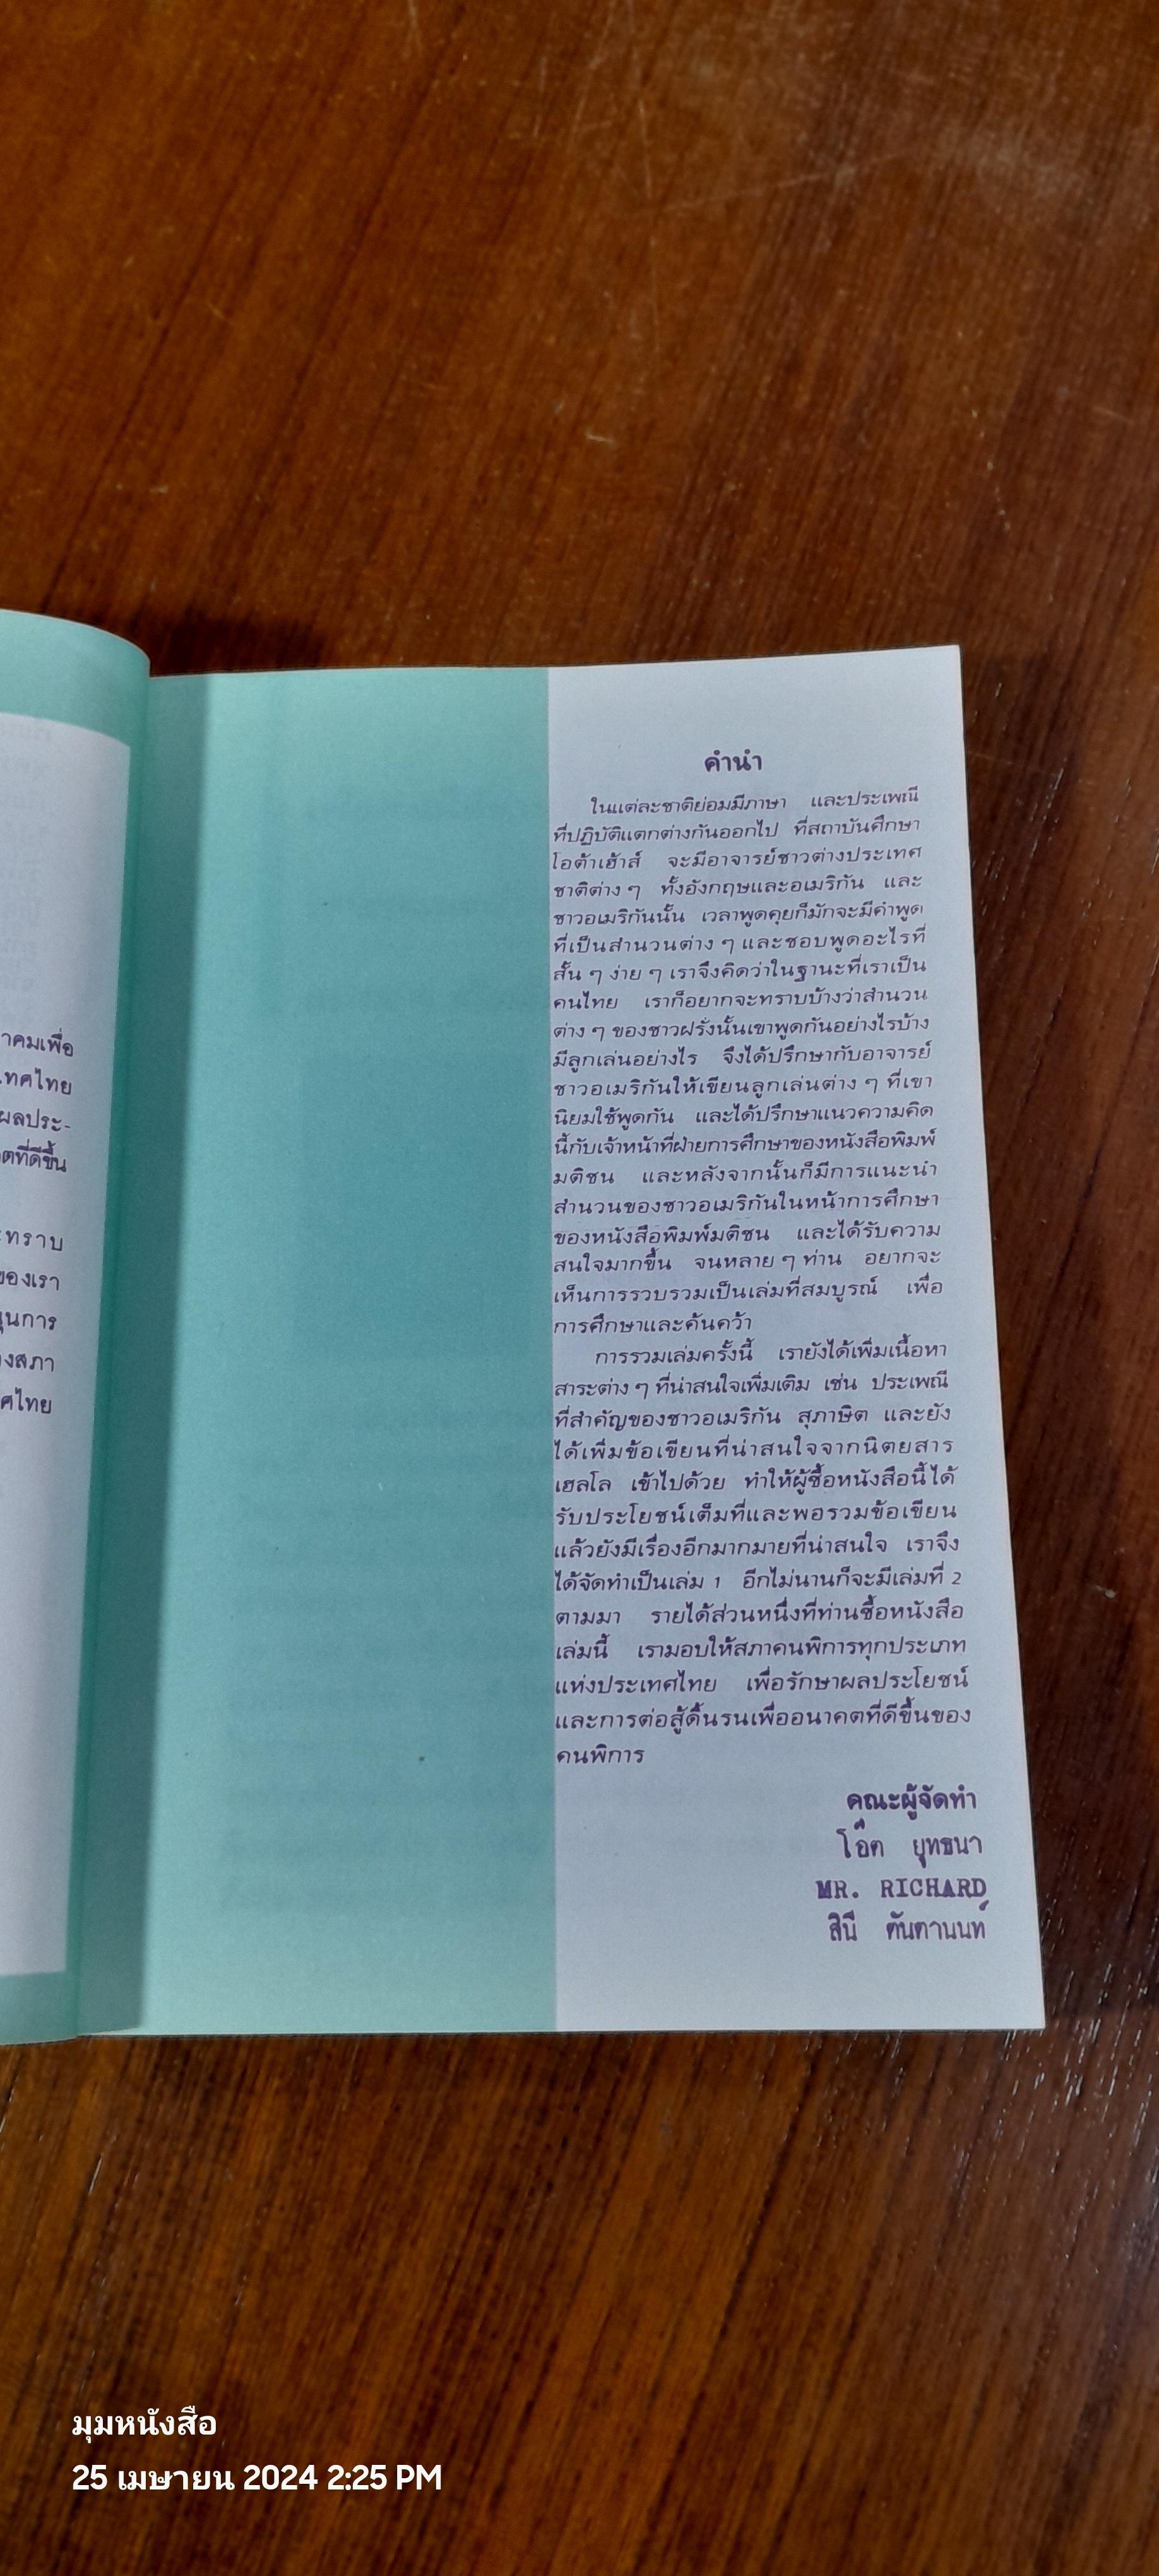 าคมเพื่อ
เทศไทย
ผลประ-
ตที่ดีขึ้น
ะทราบ
ของเรา
นุนการ
งสภา
ศไทย
คำนำ
ในแต่ละชาติย่อมมีภาษา และประเพณี
ที่ปฏิบัติแตกต่างกันออกไป ที่สถาบันศึกษา
โอต้าเฮ้าส์ จะมีอาจารย์ชาวต่างประเทศ
ชาติต่าง ๆ ทั้งอังกฤษและอเมริกัน และ
ชาวอเมริกันนั้น เวลาพูดคุยก็มักจะมีคำพูด
ที่เป็นสำนวนต่าง ๆ และชอบพูดอะไรที่
สั้น ๆ ง่าย ๆ เราจึงคิดว่าในฐานะที่เราเป็น
คนไทย เราก็อยากจะทราบบ้างว่าสำนวน
ต่าง ๆ ของชาวฝรั่งนั้นเขาพูดกันอย่างไรบ้าง
มีลูกเล่นอย่างไร จึงได้ปรึกษากับอาจารย์
ชาวอเมริกันให้เขียนลูกเล่นต่าง ๆ ที่เขา
นิยมใช้พูดกัน และได้ปรึกษาแนวความคิด
นี้กับเจ้าหน้าที่ฝ่ายการศึกษาของหนังสือพิมพ์
มติชน และหลังจากนั้นก็มีการแนะนำ
สำนวนของชาวอเมริกันในหน้าการศึกษา
ของหนังสือพิมพ์มติชน และได้รับความ
สนใจมากขึ้น จนหลาย ๆ ท่าน อยากจะ
เห็นการรวบรวมเป็นเล่มที่สมบูรณ์ เพื่อ
การศึกษาและค้นคว้า
การรวมเล่มครั้งนี้ เรายังได้เพิ่มเนื้อหา
สาระต่าง ๆ ที่น่าสนใจเพิ่มเติม เช่น ประเพณี
ที่สำคัญของชาวอเมริกัน สุภาษิต และยัง
ได้เพิ่มข้อเขียนที่น่าสนใจจากนิตยสาร
เฮลโล เข้าไปด้วย ทำให้ผู้ซื้อหนังสือนี้ได้
รับประโยชน์เต็มที่และพอรวมข้อเขียน
แล้วยังมีเรื่องอีกมากมายที่น่าสนใจ เราจึง
ได้จัดทำเป็นเล่ม 1 อีกไม่นานก็จะมีเล่มที่ 2
ตามมา รายได้ส่วนหนึ่งที่ท่านซื้อหนังสือ
เล่มนี้ เรามอบให้สภาคนพิการทุกประเภท
แห่งประเทศไทย เพื่อรักษาผลประโยชน์
และการต่อสู้ดิ้นรนเพื่ออนาคตที่ดีขึ้นของ
คนพิการ
คณะผู้จัดทำ
โอ๊ต ยุทธนา
MR. RICHARD
สินี ตันตานนท์
มุมหนังสือ
25 เมษายน 2024 2:25 PM